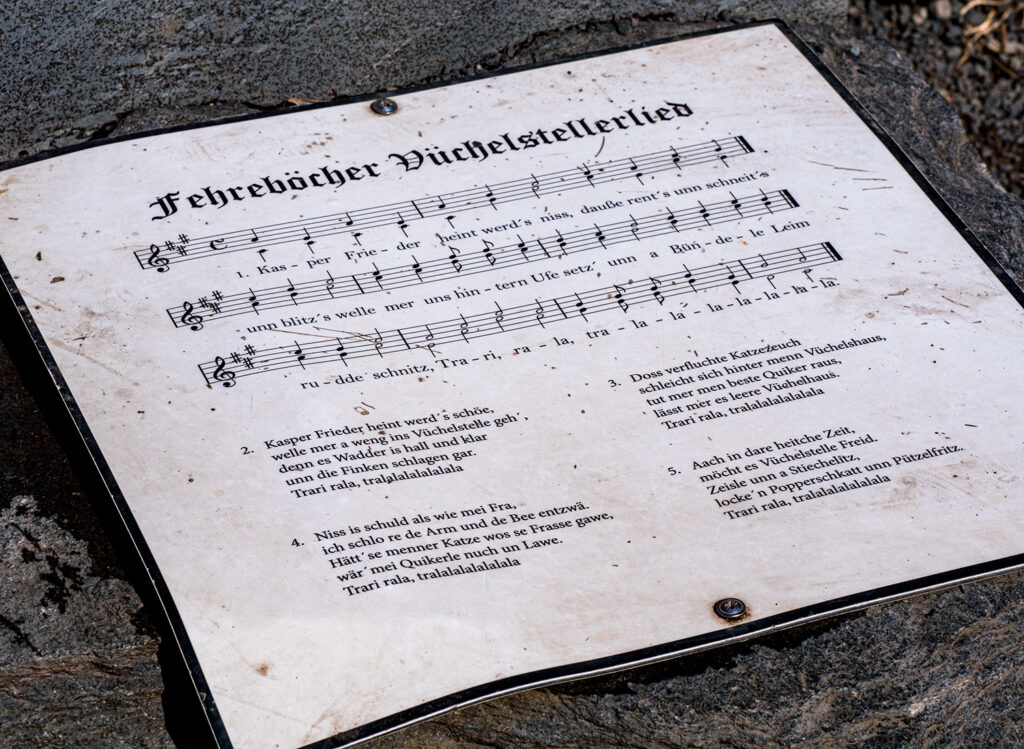 Fehreböcher Vüchelstellerlied
1. Kas - per Frie - der heint werd´s niss, dauße rent´s unn schneit´s
unn blitz´s welle mer uns hin - tern Ufe setz´ unn a - de - le Leim
ru - dde schnitz, Tra - ri, ra - la, tra - la - la - la - la - la - la - la.
2. Kasper Frieder heint werd´s schöe,
welle mer a weng ins Vüchelstelle geh´,
denn es Wadder is hall und klar
unn die Finken schlagen gar.
Trari rala, tralalalalalala
3. Doss verfluchte Katzezeuch
schleicht sich hinter menn Vüchelshaus,
tut mer men beste Quiker raus,
lässt mer es leere Vüchelhaus.
Trari rala, tralalalalalala
4. Niss is schuld als wie mei Fra,
ich schlo re de Arm und de Bee entzwä.
Hätt´se menner Katze wos se Frasse gawe,
wär´ mei Quikerle nuch un Lawe.
Trari rala, tralalalalalala
5. Aach in dare heitche Zeit,
möcht es Vüchelstelle Freid.
Zeisle unn a Stiechelitz,
locke´n Popperschkatt unn Pützelfritz.
Trari rala, tralalalalalala